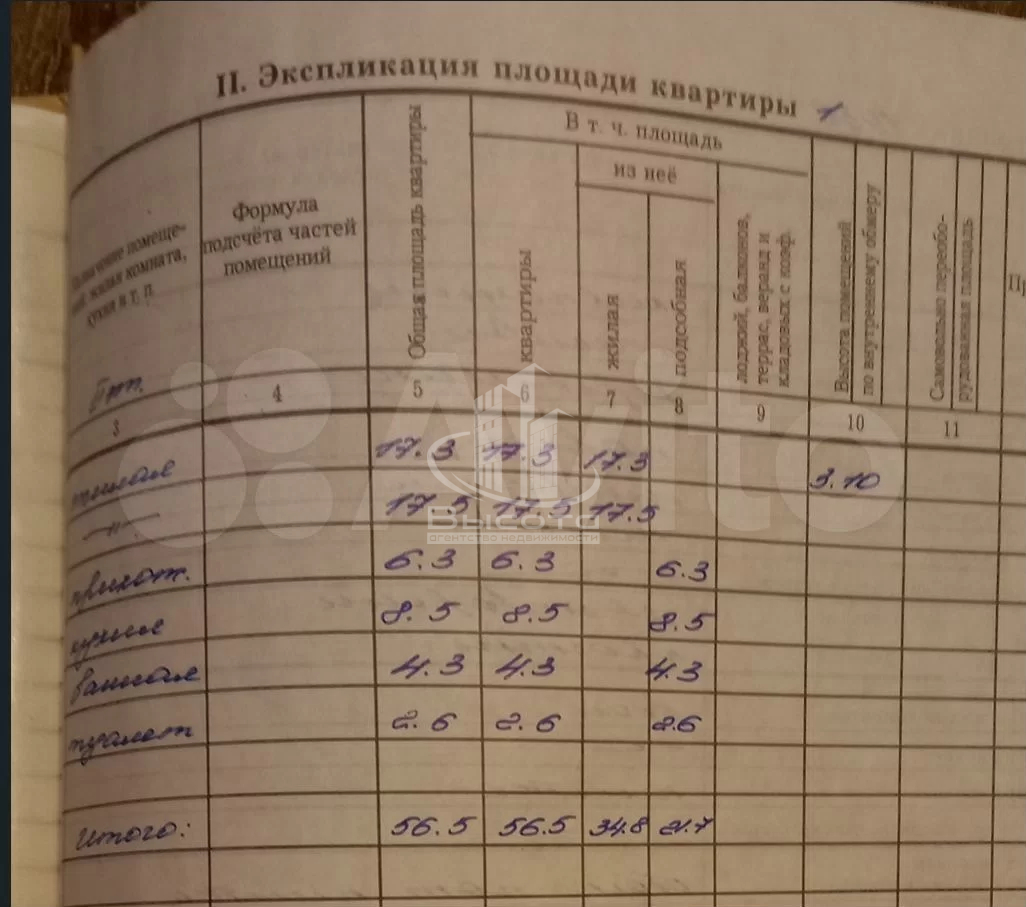 II. Экспликация площади квартиры 1
значение помеще-
ний: жилая комната,
кухня и т. п.
Формула
подсчёта частей
помещений
Общая площадь квартиры
В т. ч. площадь
квартиры
из неё
жилая
подсобная
лоджий, балконов,
террас, веранд и
кладовых с коэф.
Высота помещений
по внутреннему обмеру
Самовольно переобо-
рудованная площадь
Пр
3 4 5 6 7 8 9 10 11
жилая 17.3 17.3 17.3 3.10
—"— 17.5 17.5 17.5
прихож. 6.3 6.3 6.3
кухня 8.5 8.5 8.5
ванная 4.3 4.3 4.3
туалет 2.6 2.6 2.6
Итого: 56.5 56.5 34.8 21.7
Avito
Высота
агентство недвижимости